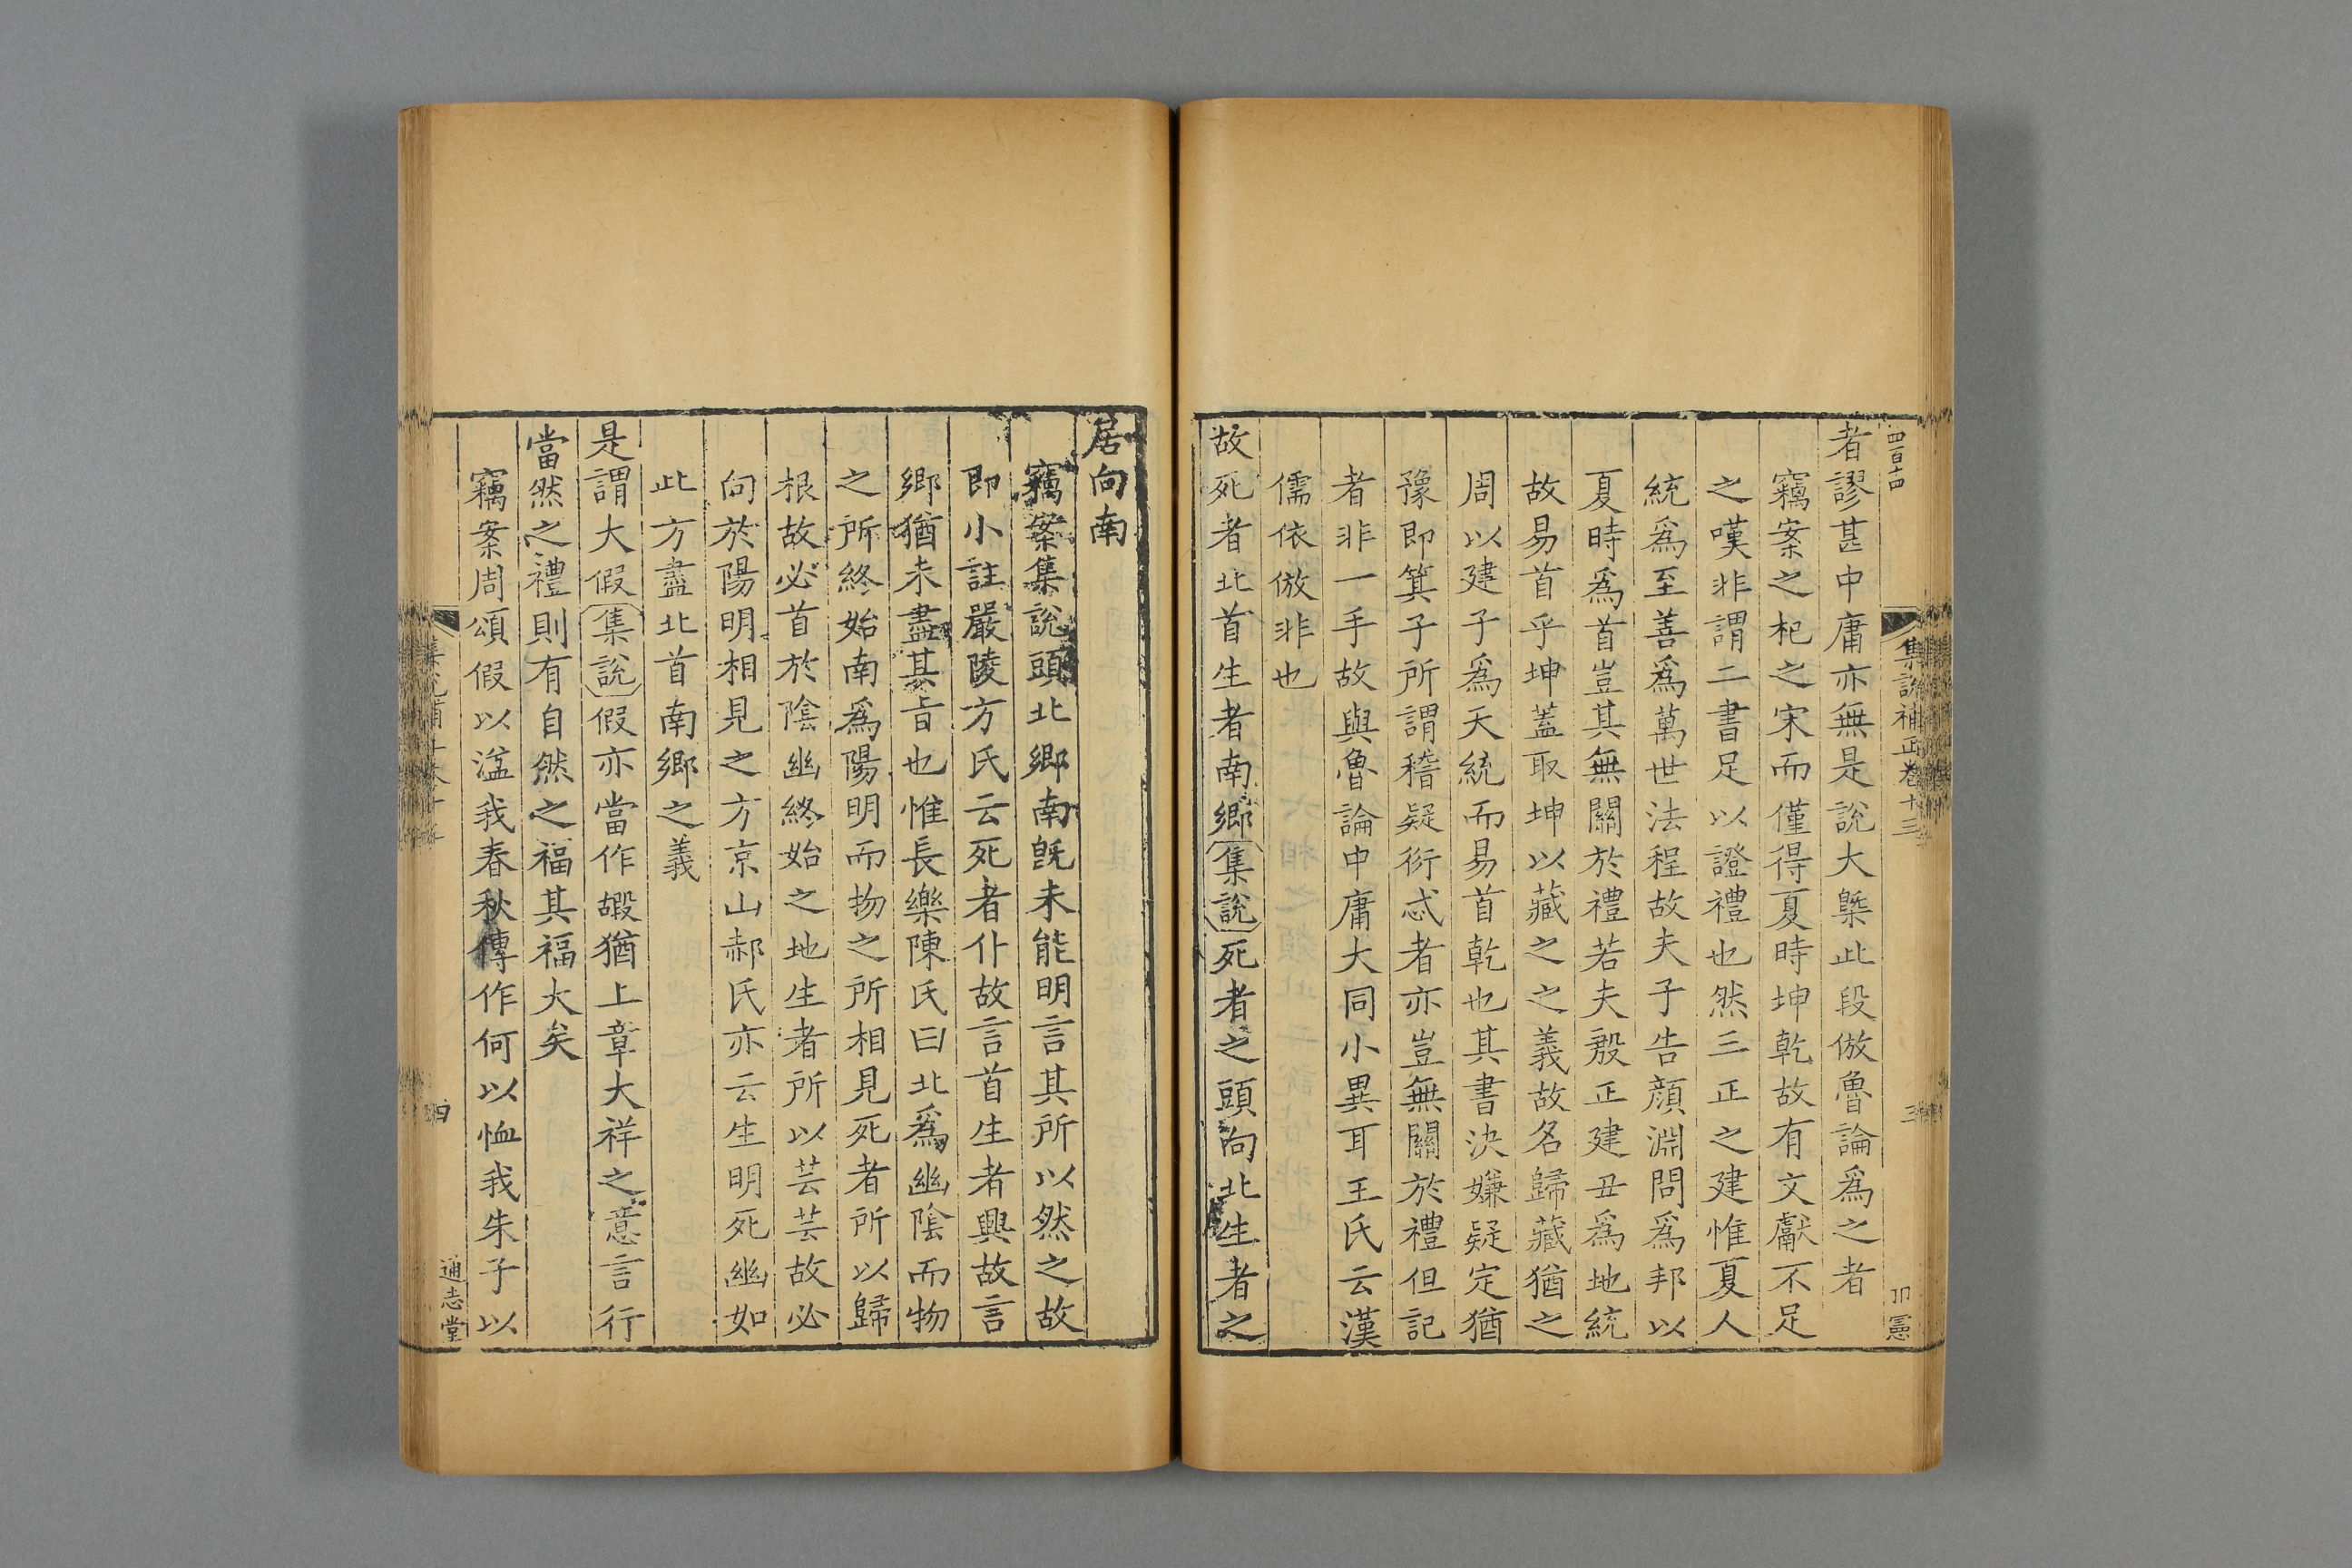 四百十四
集說補正卷十三
三
卭憲
者謬甚中庸亦無是說大槩此段倣魯論爲之者
竊案之杞之宋而僅得夏時坤乾故有文獻不足
之嘆非謂二書足以證禮也然三正之建惟夏人
統爲至善爲萬世法程故夫子告顔淵問爲邦以
夏時爲首豈其無關於禮若夫殷正建丑爲地統
故易首乎坤蓋取坤以藏之之義故名歸藏猶之
周以建子爲天統而易首乾也其書決嫌疑定猶
豫即箕子所謂稽疑衍忒者亦豈無關於禮但記
者非一手故與魯論中庸大同小異耳王氏云漢
儒依倣非也
故死者北首生者南鄉集說死者之頭向北生者之
居向南
竊案集說頭北鄉南旣未能明言其所以然之故
即小註嚴陵方氏云死者仆故言首生者興故言
鄉猶未盡其旨也惟長樂陳氏曰北爲幽陰而物
之所終始南爲陽明而物之所相見死者所以歸
根故必首於陰幽終始之地生者所以芸芸故必
向於陽明相見之方京山郝氏亦云生明死幽如
此方盡北首南鄉之義
是謂大假集說假亦當作嘏猶上章大祥之意言行
當然之禮則有自然之福其福大矣
竊案周頌假以溢我春秋傳作何以恤我朱子以
四
通志堂